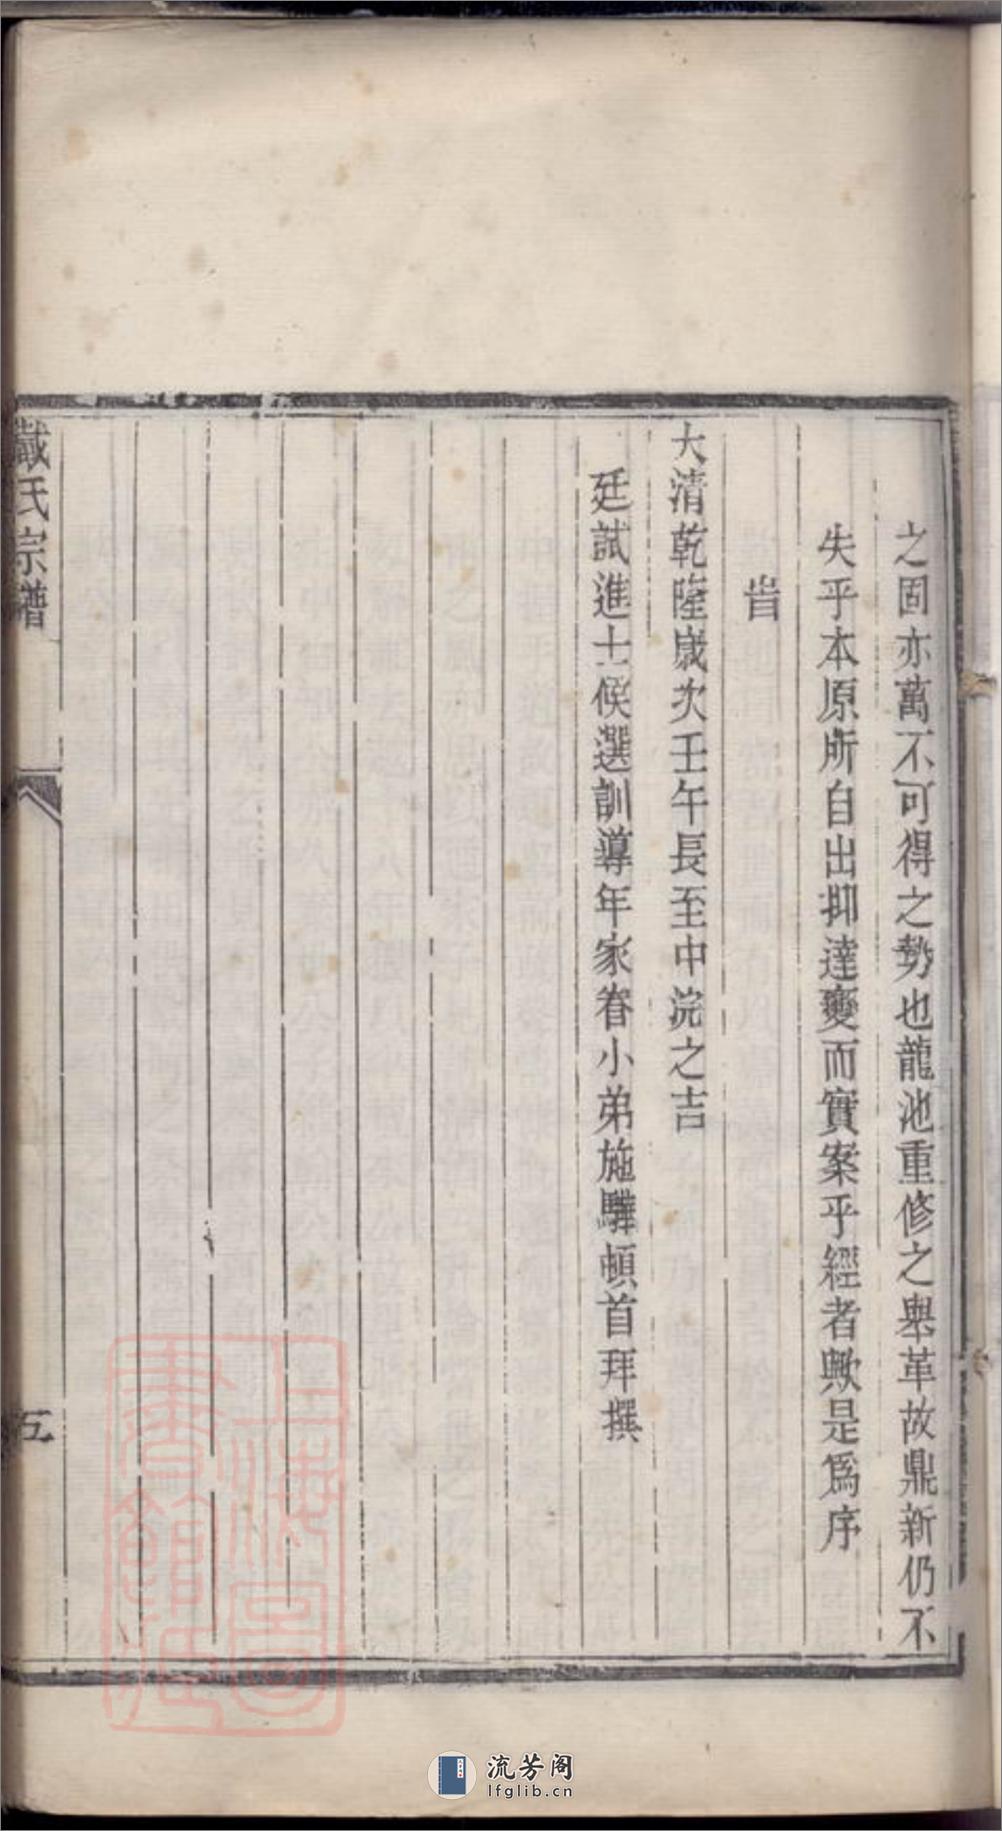 之固亦萬不可得之勢也龍池重修之舉革故鼎新仍不
失乎本原所自出抑達變而實案乎經者歟是爲序
旹
大清乾隆歲次壬午長至中浣之吉
廷試進士候選訓導年家眷小弟施驊頓首拜撰
戴氏宗譜
五
上海圖
書館藏
流芳阁
lfglib.cn